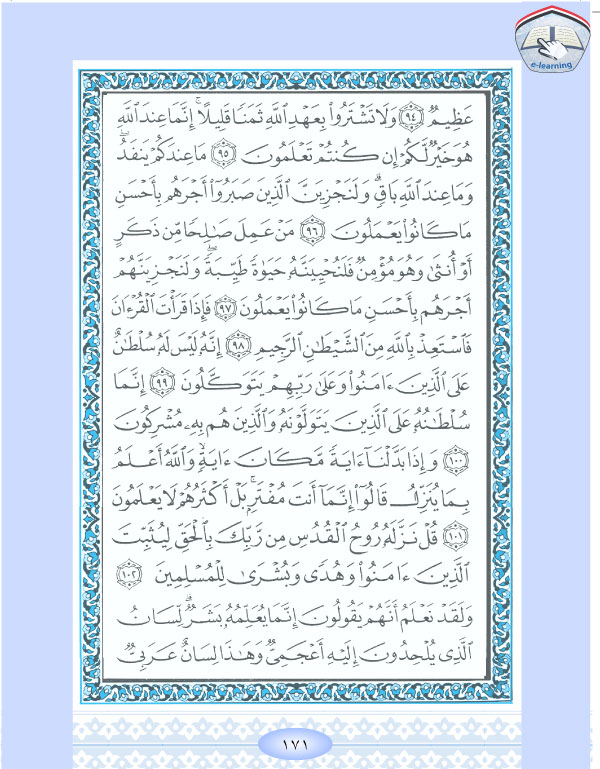 e-learning
عَظِيمٌ ﴿٩٤﴾ وَلَا تَشْتَرُوا۟ بِعَهْدِ ٱللَّهِ ثَمَنًا قَلِيلًا ۚ إِنَّمَا عِندَ ٱللَّهِ
هُوَ خَيْرٌ لَّكُمْ إِن كُنتُمْ تَعْلَمُونَ ﴿٩٥﴾ مَا عِندَكُمْ يَنفَدُ ۖ
وَمَا عِندَ ٱللَّهِ بَاقٍ ۗ وَلَنَجْزِيَنَّ ٱلَّذِينَ صَبَرُوٓا۟ أَجْرَهُم بِأَحْسَنِ
مَا كَانُوا۟ يَعْمَلُونَ ﴿٩٦﴾ مَنْ عَمِلَ صَـٰلِحًا مِّن ذَكَرٍ
أَوْ أُنثَىٰ وَهُوَ مُؤْمِنٌ فَلَنُحْيِيَنَّهُۥ حَيَوٰةً طَيِّبَةً ۖ وَلَنَجْزِيَنَّهُمْ
أَجْرَهُم بِأَحْسَنِ مَا كَانُوا۟ يَعْمَلُونَ ﴿٩٧﴾ فَإِذَا قَرَأْتَ ٱلْقُرْءَانَ
فَٱسْتَعِذْ بِٱللَّهِ مِنَ ٱلشَّيْطَـٰنِ ٱلرَّجِيمِ ﴿٩٨﴾ إِنَّهُۥ لَيْسَ لَهُۥ سُلْطَـٰنٌ
عَلَى ٱلَّذِينَ ءَامَنُوا۟ وَعَلَىٰ رَبِّهِمْ يَتَوَكَّلُونَ ﴿٩٩﴾ إِنَّمَا
سُلْطَـٰنُهُۥ عَلَى ٱلَّذِينَ يَتَوَلَّوْنَهُۥ وَٱلَّذِينَ هُم بِهِۦ مُشْرِكُونَ
﴿١٠٠﴾ وَإِذَا بَدَّلْنَآ ءَايَةً مَّكَانَ ءَايَةٍ ۙ وَٱللَّهُ أَعْلَمُ
بِمَا يُنَزِّلُ قَالُوٓا۟ إِنَّمَآ أَنتَ مُفْتَرٍۭ ۚ بَلْ أَكْثَرُهُمْ لَا يَعْلَمُونَ
﴿١٠١﴾ قُلْ نَزَّلَهُۥ رُوحُ ٱلْقُدُسِ مِن رَّبِّكَ بِٱلْحَقِّ لِيُثَبِّتَ
ٱلَّذِينَ ءَامَنُوا۟ وَهُدًى وَبُشْرَىٰ لِلْمُسْلِمِينَ ﴿١٠٢﴾
وَلَقَدْ نَعْلَمُ أَنَّهُمْ يَقُولُونَ إِنَّمَا يُعَلِّمُهُۥ بَشَرٌ ۗ لِّسَانُ
ٱلَّذِى يُلْحِدُونَ إِلَيْهِ أَعْجَمِىٌّ وَهَـٰذَا لِسَانٌ عَرَبِىٌّ
١٧١